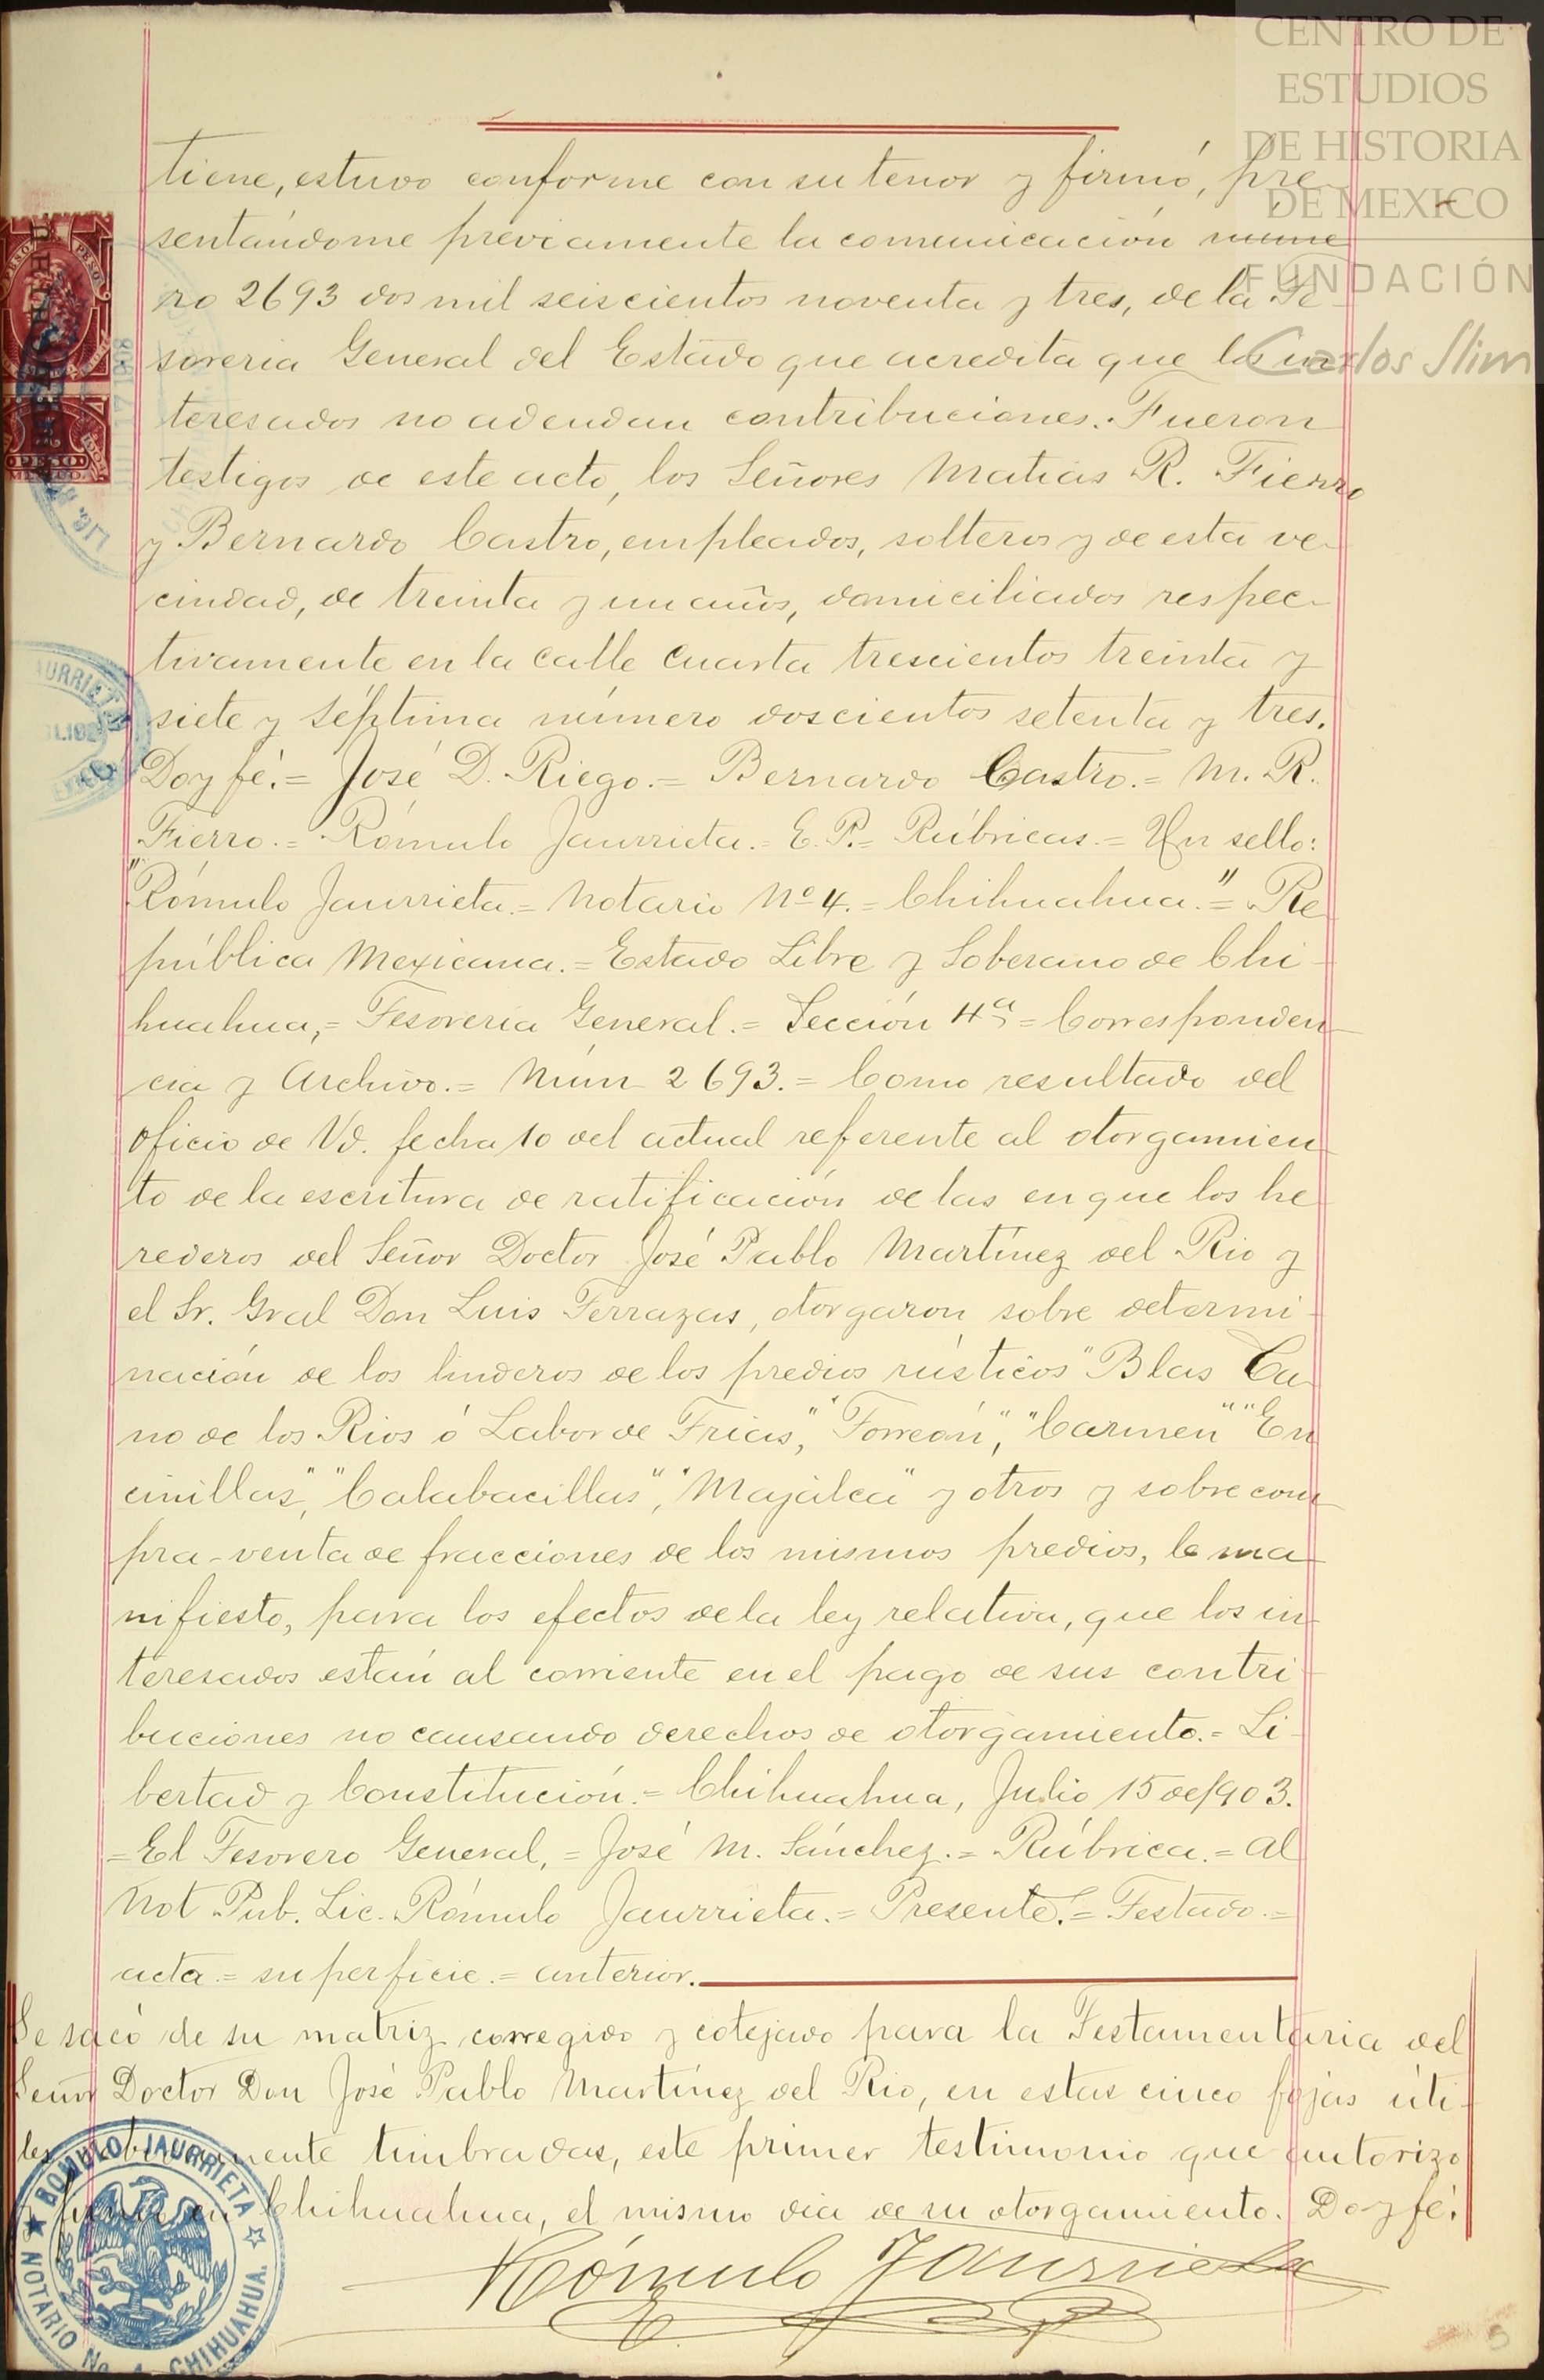 CENTRO DE
ESTUDIOS
DE HISTORIA
DE MEXICO
FUNDACIÓN
Carlos Slim
tiene, estuvo conforme con su tenor y firmó, pre-
sentándome préviamente la comunicación núme
ro 2693 dos mil seiscientos noventa y tres, de la Te-
sorería General del Estado que acredita que los in
teresados no adeudan contribuciones. Fueron
testigos de este acto, los Señores Matías R. Fierro
y Bernardo Castro, empleados, solteros y de esta ve-
cindad, de treinta y un años, domiciliados respec-
tivamente en la calle Cuarta trescientos treinta y
siete y Séptima número doscientos setenta y tres.
Doy fé. = José D. Riego. = Bernardo Castro. = M. R.
Fierro. = Rómulo Jaurrieta. = E. P. = Rúbricas. = Un sello:
"Rómulo Jaurrieta. = Notario No 4. = Chihuahua." = Re
pública Mexicana. = Estado Libre y Soberano de Chi-
huahua, = Tesorería General. = Sección 4ª = Corresponden-
cia y Archivo. = Núm 2693. = Como resultado del
oficio de Vd. fecha 10 del actual referente al otorgamien
to de la escritura de ratificación de las en que los he
rederos del Señor Doctor José Pablo Martínez del Rio y
el Sr. Gral Don Luis Terrazas, otorgaron sobre determi-
nación de los linderos de los predios rústicos "Blas Ca
no de los Rios ó Labor de Trias," "Torreón", "Carmen" "En
cinillas", "Calabacillas", "Majalca" y otros y sobre com
pra-venta de fracciones de los mismos predios, le ma
nifiesto, para los efectos de la ley relativa, que los in
teresados están al corriente en el pago de sus contri-
buciones no causando derechos de otorgamiento. = Li-
bertad y Constitución. = Chihuahua, Julio 15 de 1903.
= El Tesorero General, = José M. Sánchez. = Rúbrica. = Al
Not Pub. Lic. Rómulo Jaurrieta. = Presente. = Testado. =
acta = superficie. = anterior.
Se sacó de su matriz corregido y cotejado para la Testamentaria del
Señor Doctor Don José Pablo Martínez del Rio, en estas cinco fojas úti-
les debidamente timbradas, este primer testimonio que autorizo
y firmo en Chihuahua, el mismo dia de su otorgamiento. Doy fé.
Rómulo Jaurrieta
E. P.
ROMULO JAURRIETA
NOTARIO No. 4 CHIHUAHUA.
5